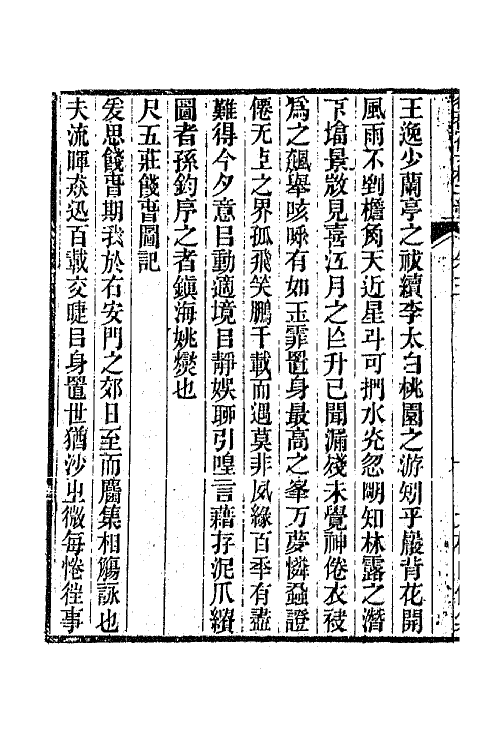 王逸少蘭亭之祓續李太白桃園之游矧乎巖背花開
風雨不到檐角天近星斗可捫水光忽明知林露之潛
下墖景敚見喜江月之上升已聞漏殘未覺神倦衣袯
爲之飄舉咳唾有如玉霏置身最高之峯万夢憐蝨證
僊无上之界孤飛笑鵬千載而遇莫非夙緣百年有盡
難得今夕意㠯動適境㠯靜娛聊引喤言藉存泥爪繢
圖者孫鈞序之者鎮海姚燮也
尺五莊餞曹圖記
爰思餞曹期我於右安門之郊日至而麕集相觴詠也
夫流暉森迅百載交睫㠯身置世猶沙虫微每惓徃事